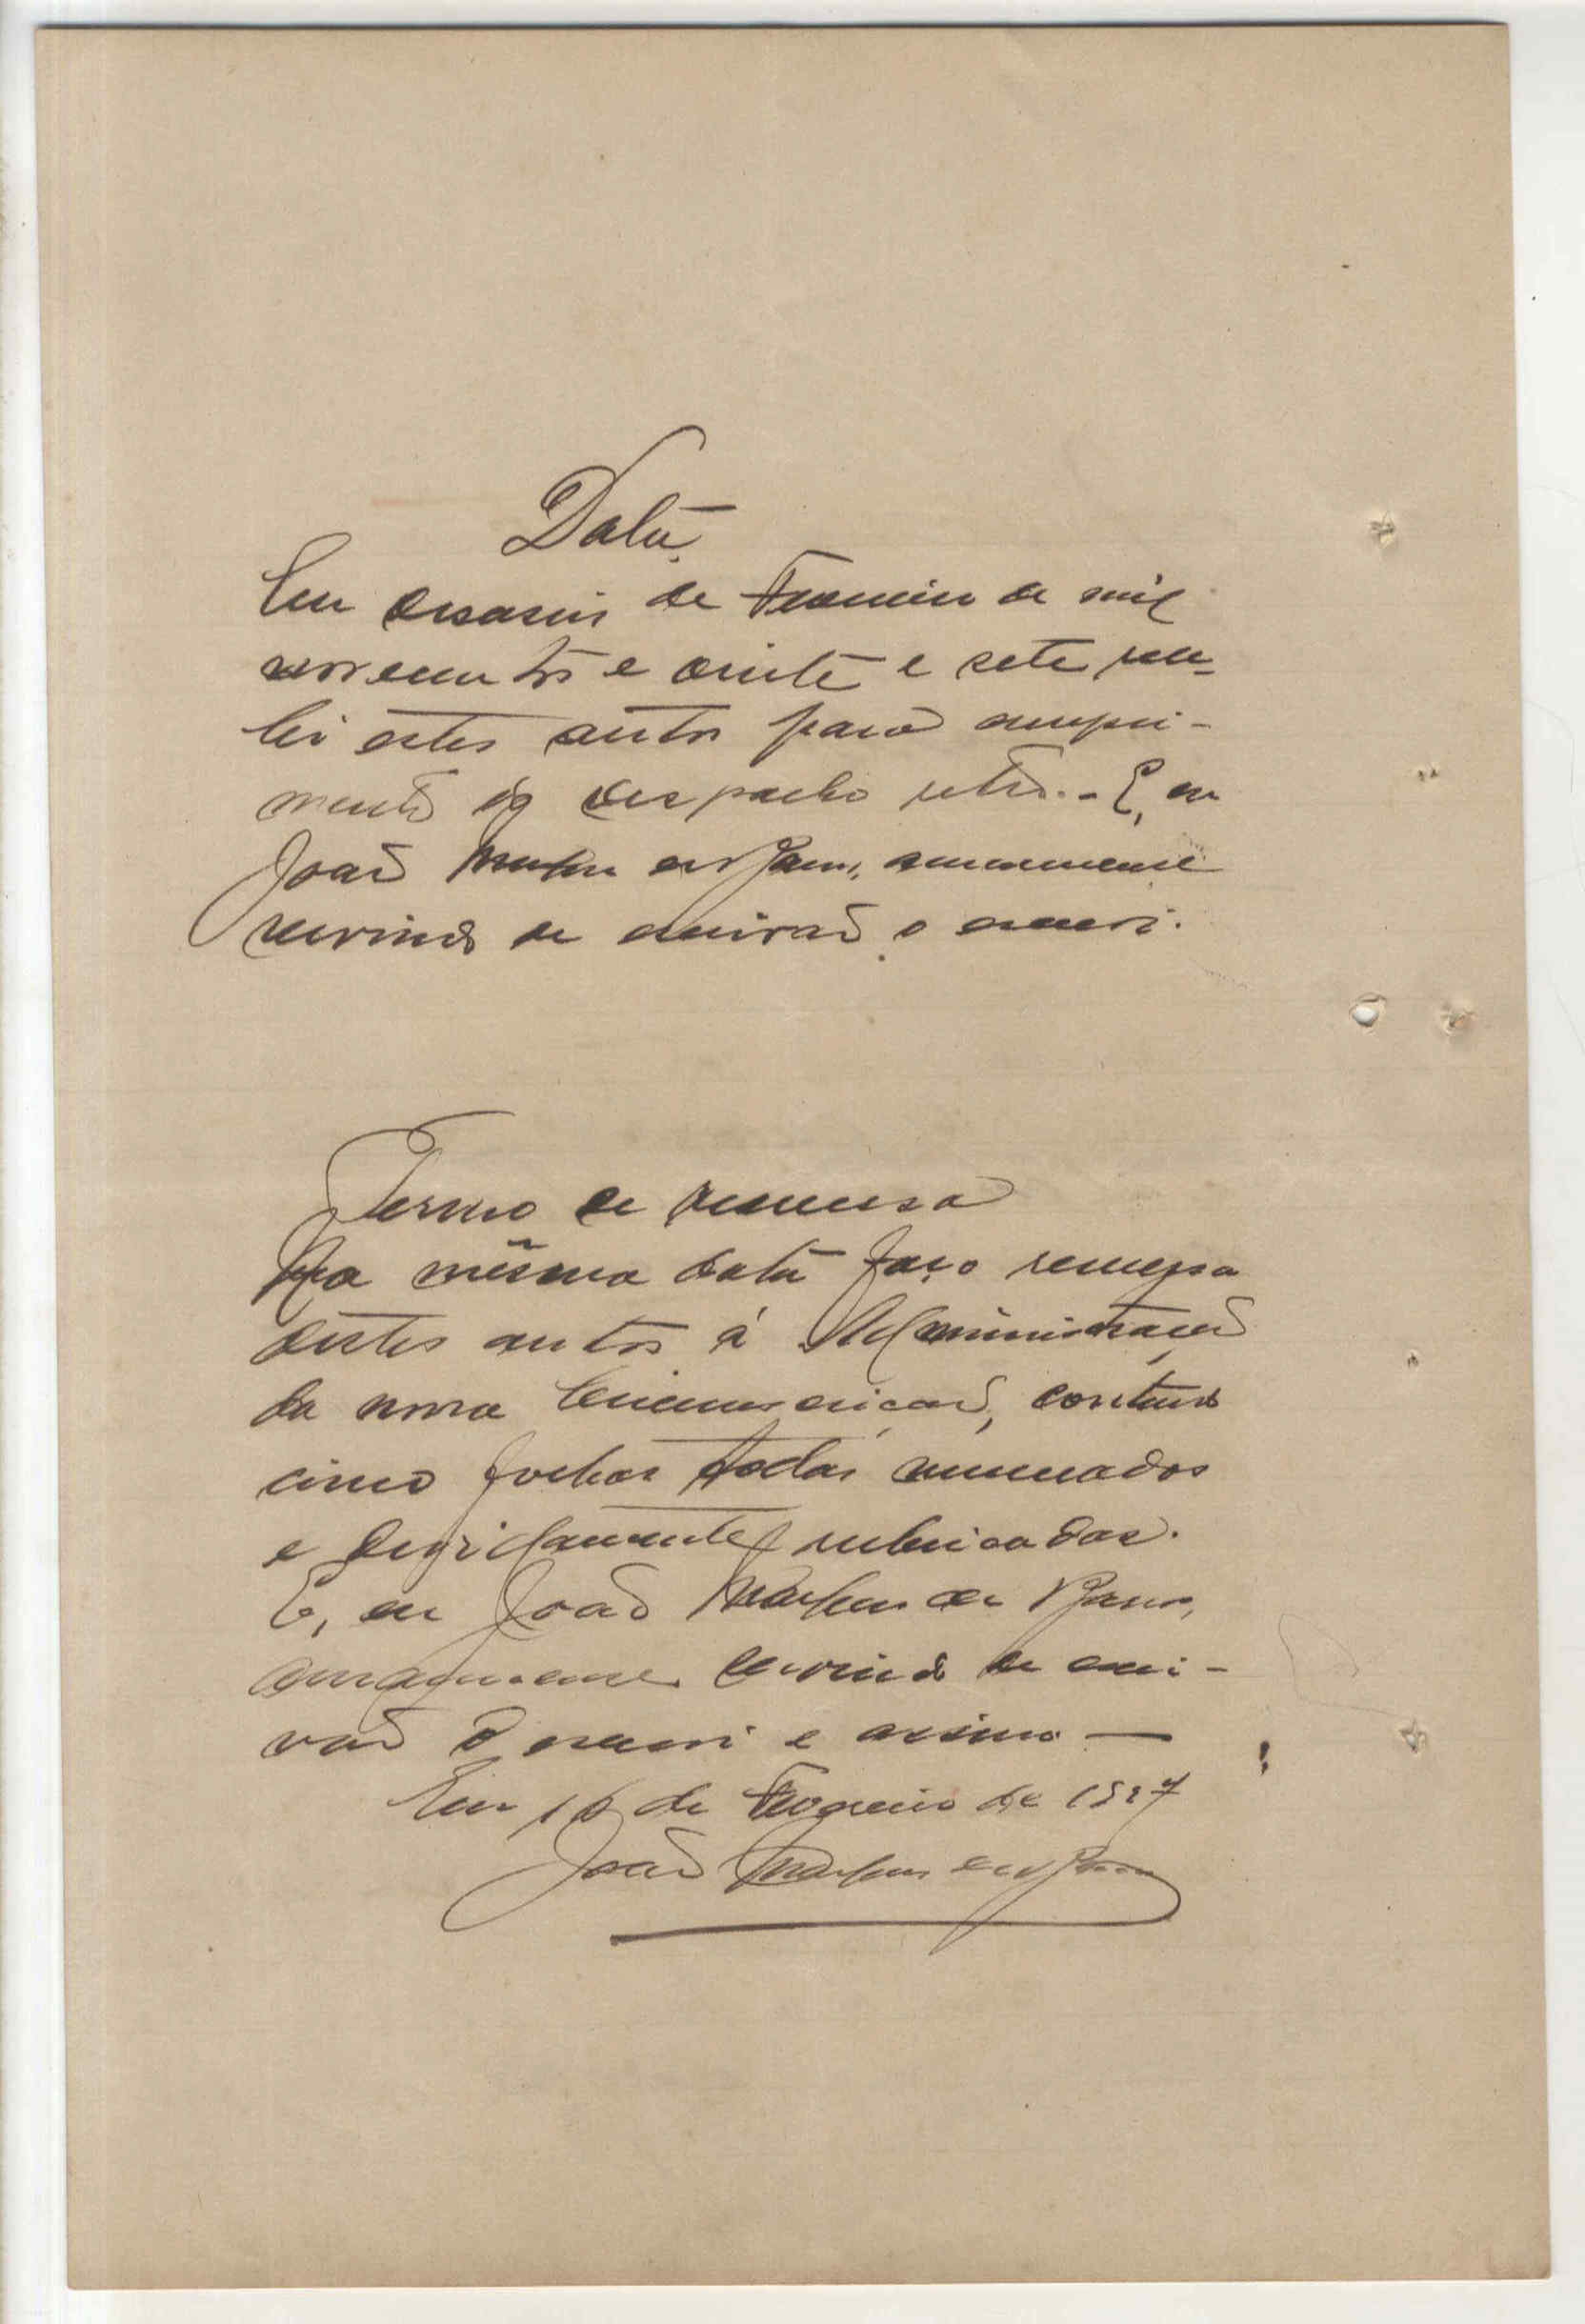 Data
Em desaseis de Fevereiro de mil
novecentos e vinte e sete rece-
bi estes autos para cumpri-
mento do despacho retro. - E, eu
João de Barros, amanuense
servindo de escrivão o escrevi.
Termo de remessa
Na mesma data faço remessa
destes autos á Administração
da nona Circumscrição, contendo
cinco folhas todas numeradas
e devidamente rubricadas.
E, eu João de Barros,
amanuense servindo de escri-
vão o escrevi e assino —
Em 16 de Fevereiro de 1927
João